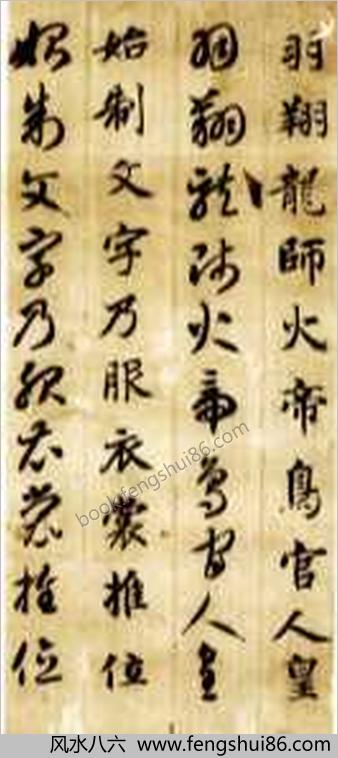 羽翔龍師火帝鳥官人皇
羽翔龍師火帝鳥官人皇
始制文字乃服衣裳推位
始制文字乃服衣裳推位
book.fengshui86.com
风水八六 www.fengshui86.com